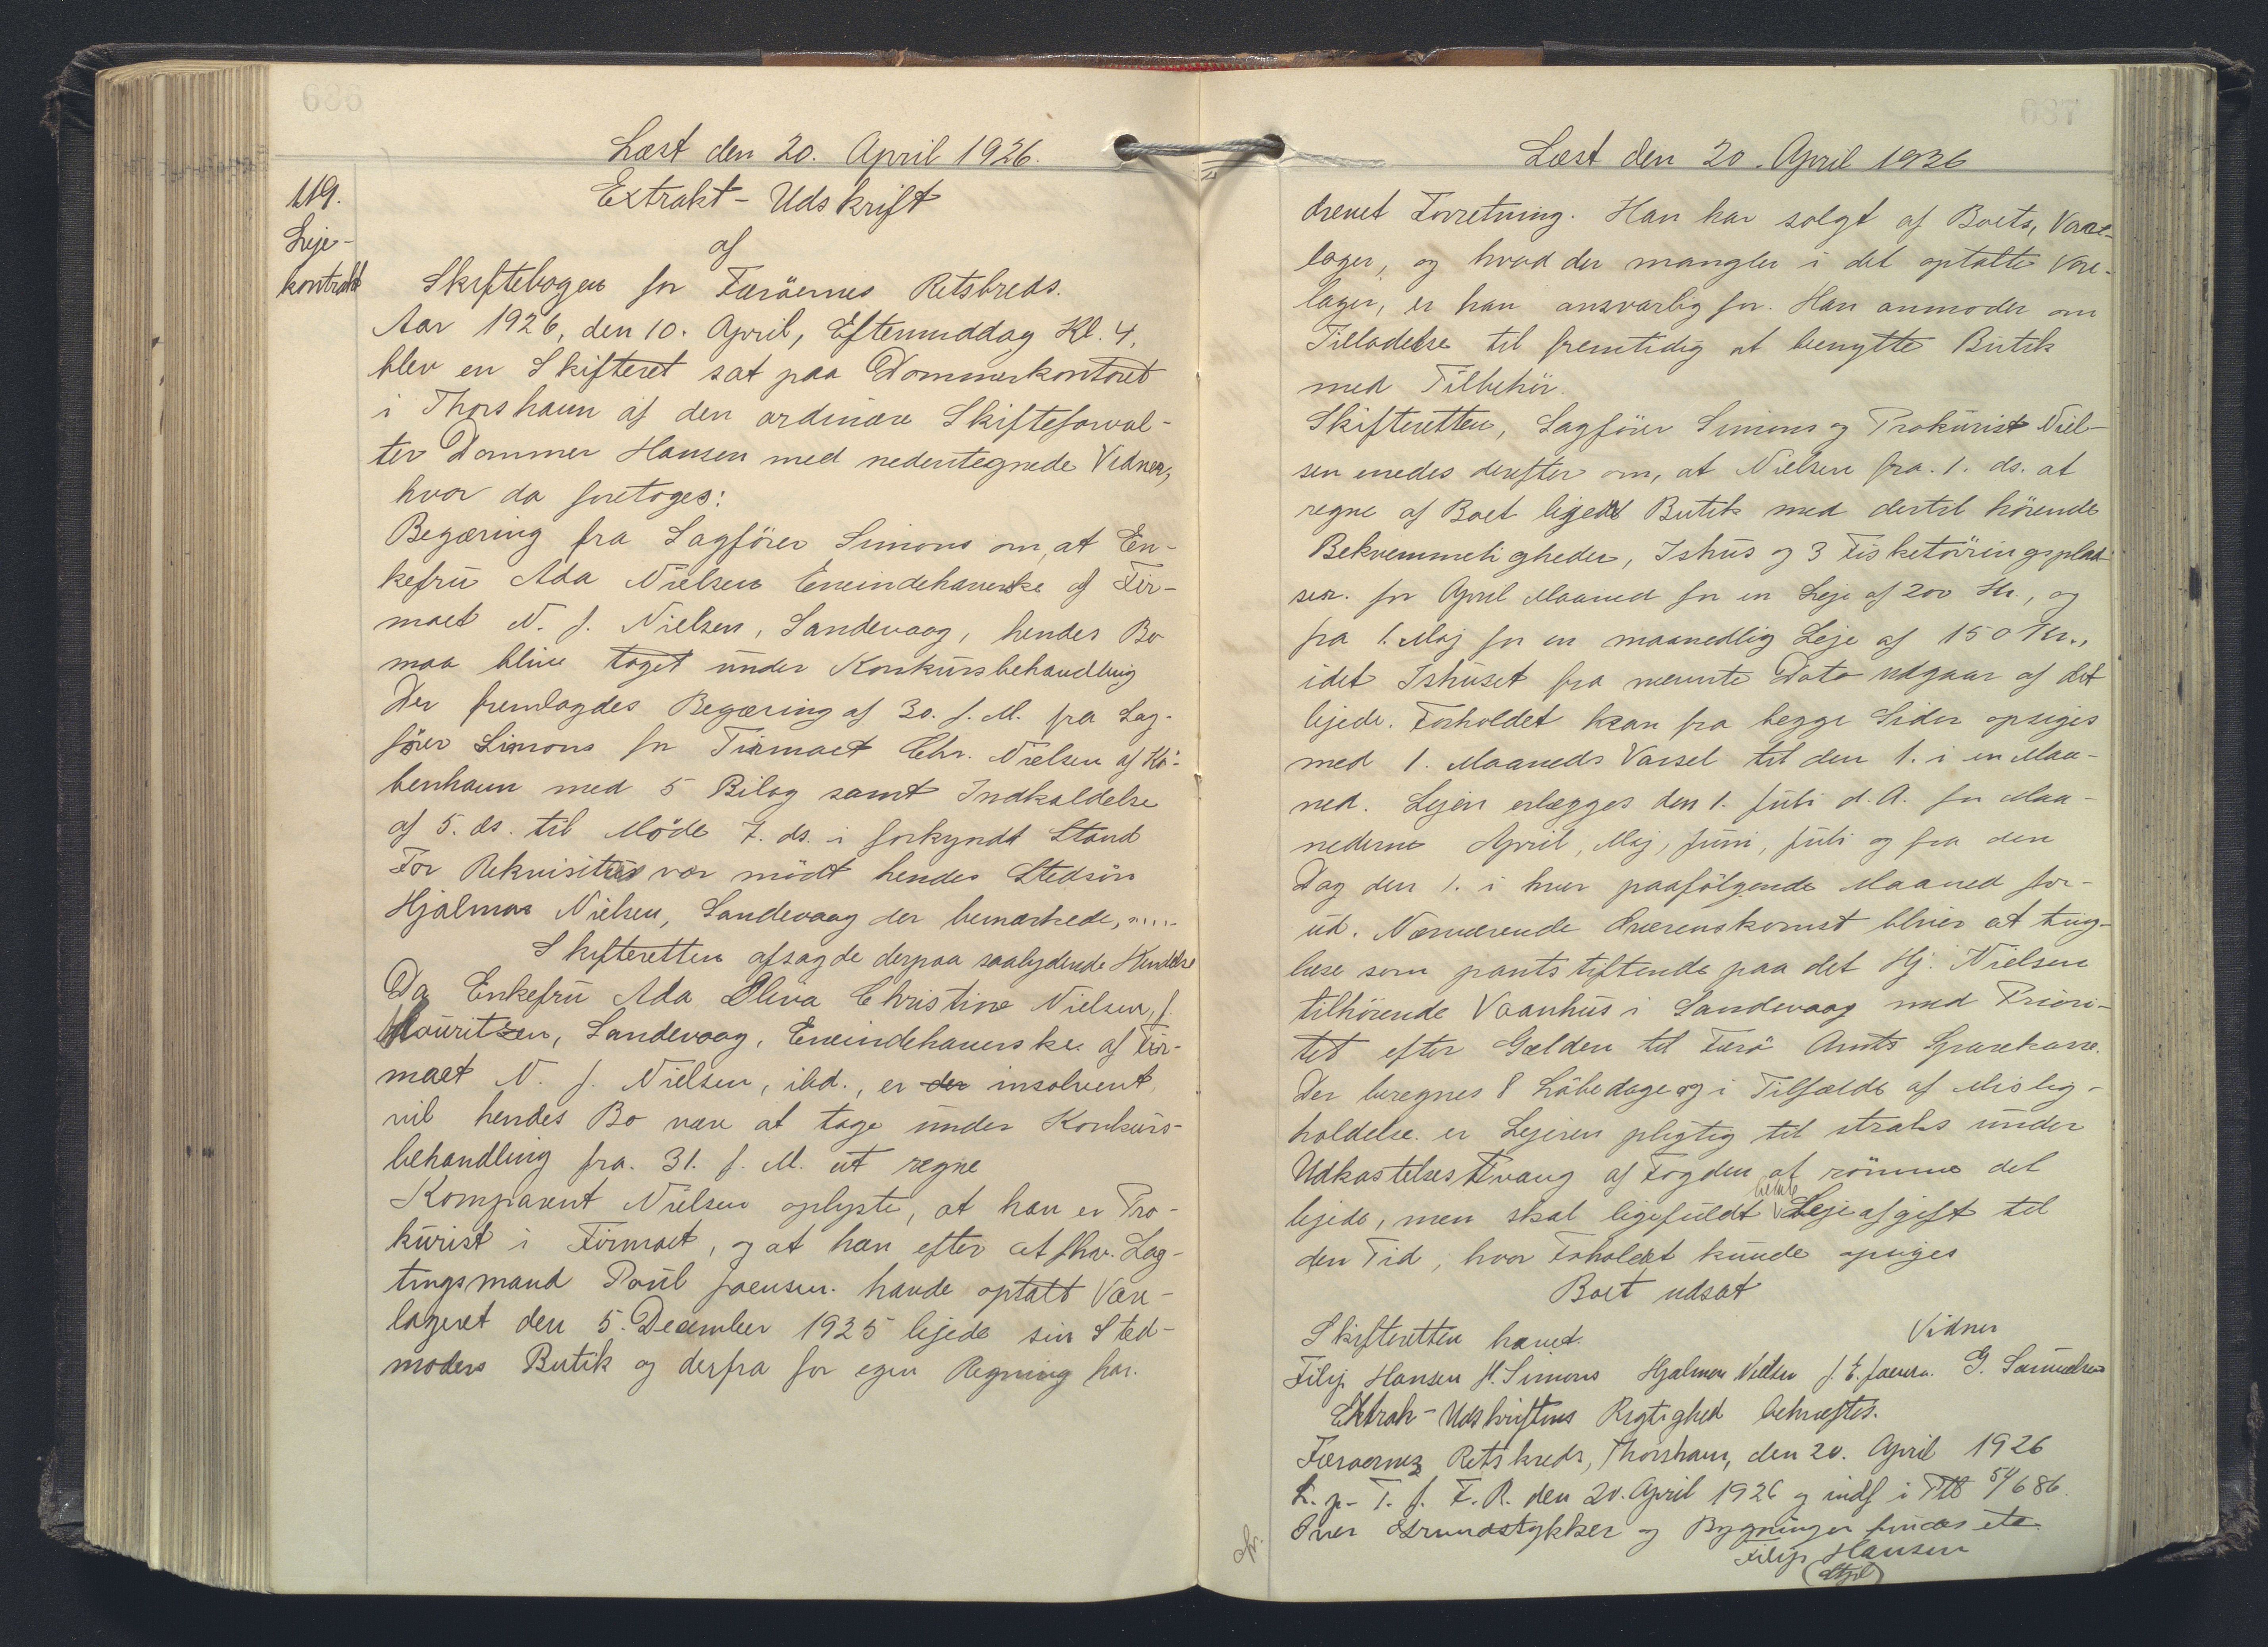 686
Læst den 20. April 1926.
119.
Leje-
kontrakt
Extrakt-Udskrift
af
Skiftebogen for Færöernes Retskreds.
Aar 1926, den 10. April, Eftermiddag Kl. 4,
blev en Skifteret sat paa Dommerkontoret
i Thorshavn af den ordinære Skifteforval-
ter Dommer Hansen med nedentegnede Vidner,
hvor da foretoges:
Begæring fra Sagförer Simons om, at En-
kefru Ada Nielsen Eneindehaverske af Fir-
maet N. J. Nielsen, Sandevaag, hendes Bo
maa blive taget under Konkursbehandling
Der fremlagdes Begæring af 30. f. M. fra Sag-
förer Simons for Firmaet Chr. Nielsen af Kö-
benhavn med 5 Bilag samt Indkaldelse
af 5. ds. til Möde 7. ds. i forkyndt Stand
For Rekvisitus var mödt hendes Stedsön
Hjalmar Nielsen, Sandevaag der bemærkede, .....
Skifteretten afsagde derpaa saalydende Kendelse
Da Enkefru Ada Olivia Christine Nielsen, f.
Mouritzen, Sandevaag, Eneindehaverske af Fir-
maet N. J. Nielsen, ibd., er der insolvent,
vil hendes Bo være at tage under Konkurs-
behandling fra 31. f. M. at regne
Komparent Nielsen oplyste, at han er Pro-
kurist i Firmaet, og at han efter at fhv. Lag-
tingsmand Poul Joensen havde optalt Vare-
lageret den 5. December 1925 lejede sin Sted-
moders Butik og derfra for egen Regning har
687
Læst den 20. April 1926
drevet Forretning. Han har solgt af Boets Vare-
lager, og hvad der mangler i det optalte Vare-
lager, er han ansvarlig for. Han anmoder om
Tilladelse til fremtidig at benytte Butik
med Tilbehör.
Skifteretten, Sagförer Simons og Prokurist Niel-
sen enedes derefter om, at Nielsen fra 1. ds. at
regne af Boet lejede Butik med dertil hörende
Bekvemmeligheder, Ishus og 3 Fisketörringsplad-
ser. for April Maaned for en Leje af 200 Kr., og
fra 1. Maj for en maanedlig Leje af 150 Kr.,
idet Ishuset fra nævnte Dato udgaar af det
lejede. Forholdet kan fra begge Sider opsiges
med 1. Maaneds Varsel til den 1. i en Maa-
ned. Lejen erlægges den 1. Juli d. A. for Maa-
nederne April, Maj, Juni, Juli og fra den
Dag den 1. i hver paafölgende Maaned for-
ud. Nærværende Overenskomst bliver at ting-
læse som pantstiftende paa det Hj. Nielsen
tilhörende Vaanhus i Sandevaag med Priori-
tet efter Gælden til Færö Amts Sparekasse.
Der beregnes 8 Löbedage og i Tilfælde af Mislig-
holdelse er Lejeren pligtig til straks under
Udkastelsestvang af Fogden at römme det
lejede, men skal ligefuldt betale Lejeafgift til
den Tid, hvor Forholdet kunde opsiges
Boet udsat
Skifteretten hævet. Vidner
Filip Hansen H. Simons Hjalmar Nielsen J. E. Joensen. G. Samuelsen
Extrakt-Udskriftens Rigtighed bekræftes.
Færoernes Retskreds, Thorshavn, den 20. April 1926
L. p. T. f. F. R. den 20. April 1926 og indf i Ttb 54/686
Over Grundstykker og Bygninger findes ete
Filip Hansen
cfr.